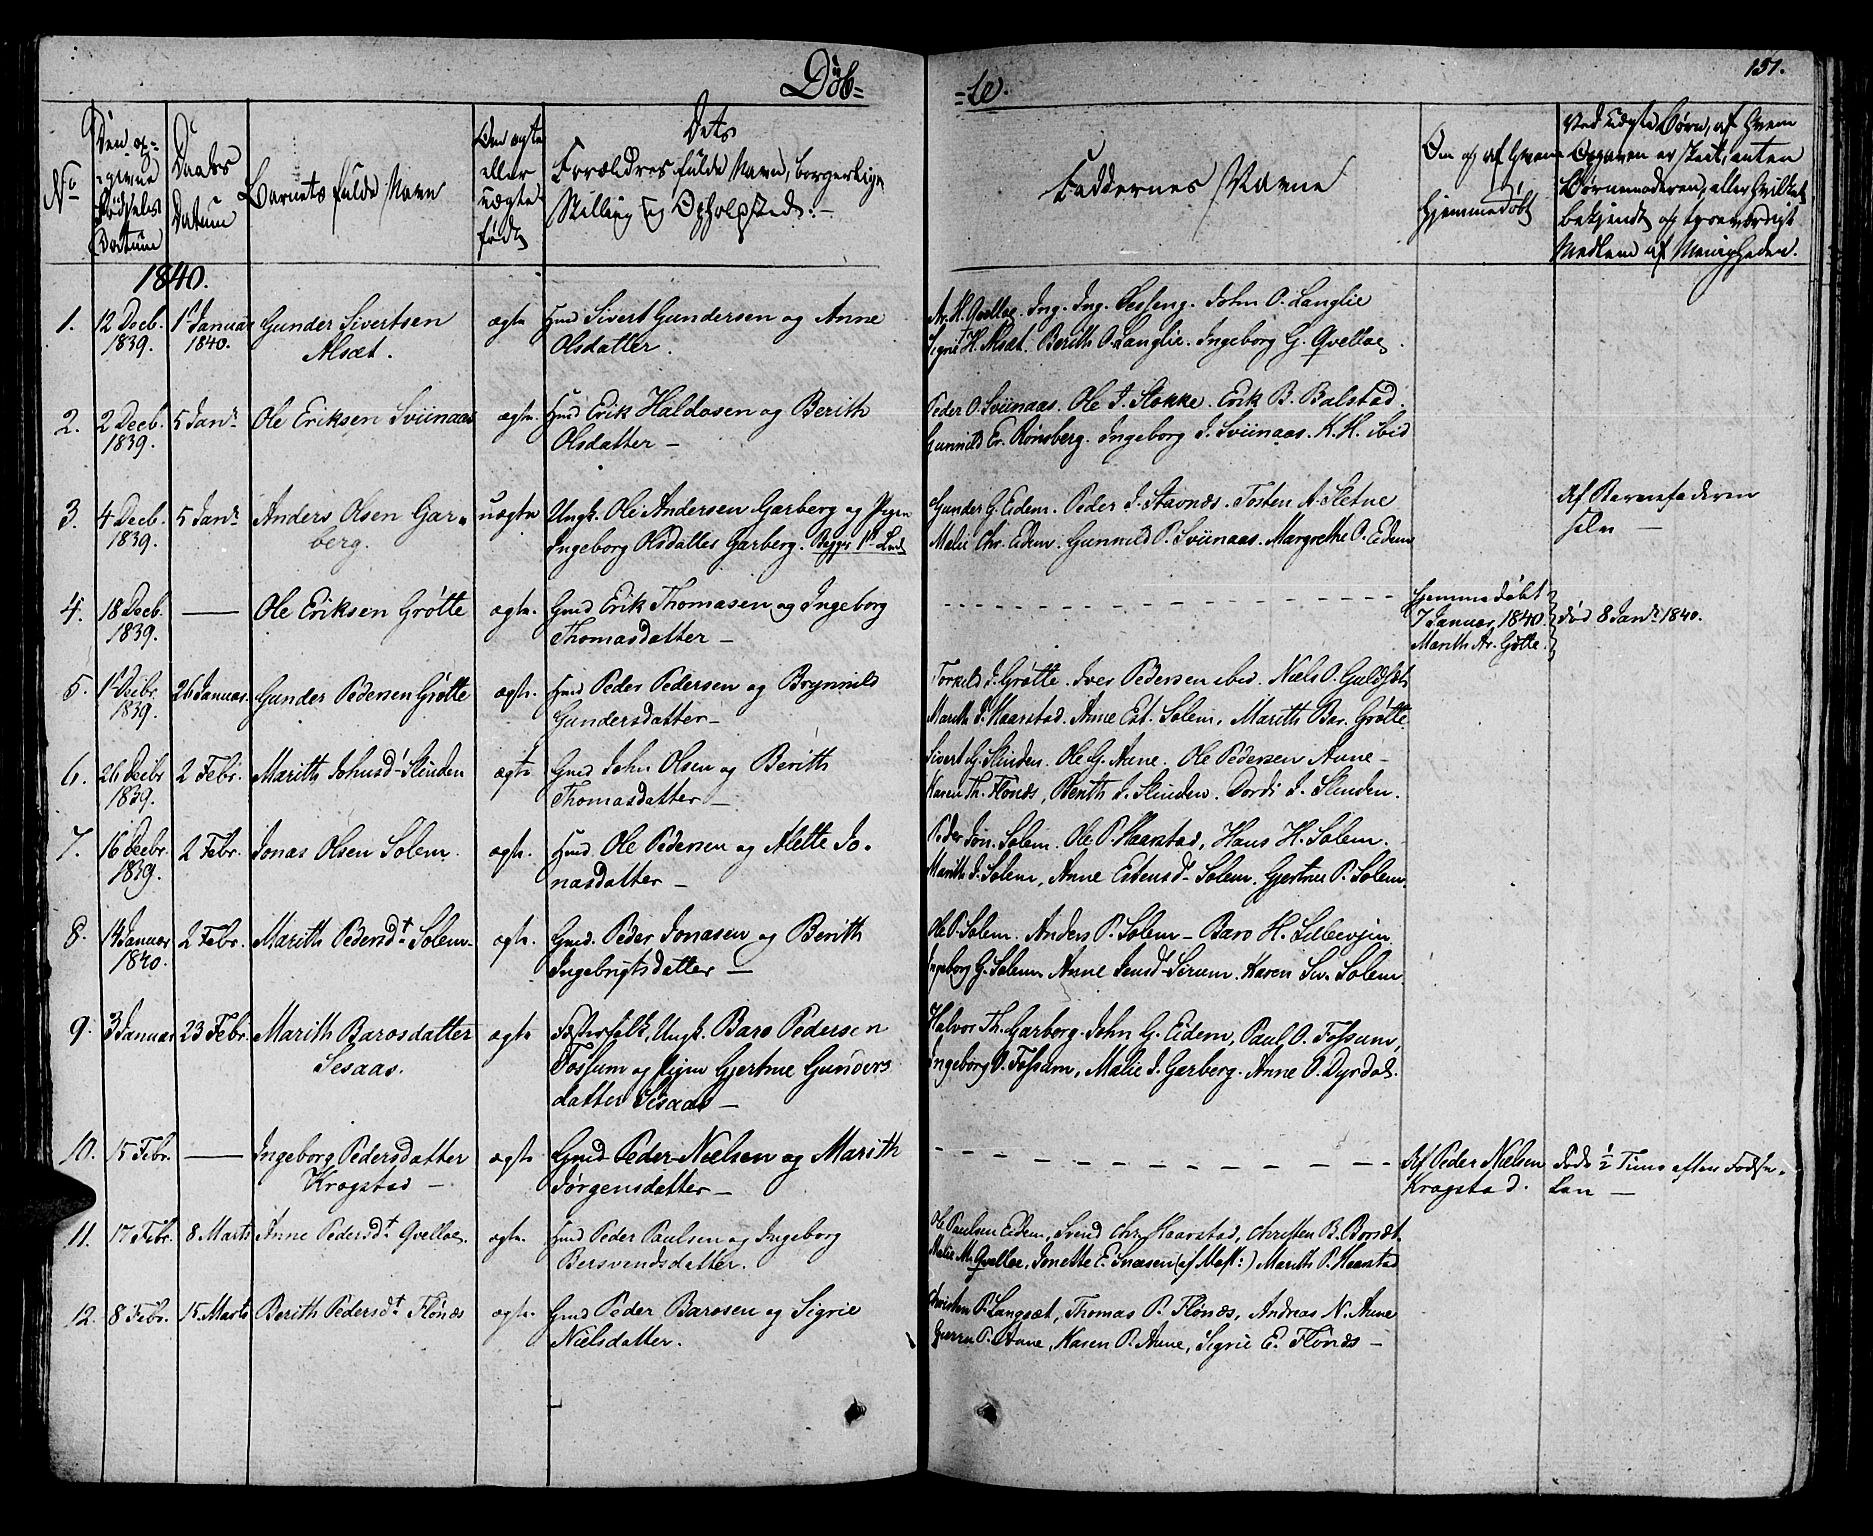 Døb=
=te.
151.
No
Den op=
=givne
Fødsels
Datum
Daabs
Datum
Barnets fulde Navn
Om ægte
eller
uægte
født
Dets
Forældres fulde Navn, borgerlige
Stilling og Opholdsted:-
Faddernes Navne
Om og af Hvem
Hjemmedøbt
Ved uægte Børn, af Hvem
Opgaven er skeet, enten
Barnemoderen, eller Hvilket
bekjendt og troeværdigt
Medlem af Menigheden.
1840.
1. 12 Decb. 1839. 1 Januar 1840. Gunder Sivertsen
Alsæt.
ægte
Hmd Sivert Gundersen og Anne
Olsdatter.
Ar. H. Qvelloe. Ing. Ing. John O. Langlie
Sigrie H. Alsæt. Berith O. Langlie. Ingeborg G. Qvelloe.
2. 2 Decb. 1839. 5 Janr. Ole Eriksen Sviinaas
ægte.
Hmd Erik Haldosen og Berith
Olsdatter -
Peder O. Sviinaas. Ole I. Stokke. Erik B. Balstad.
Gunnild Er. Rønsberg. Ingeborg I. Sviinaas. K. H. ibid
3. 4 Decb. 1839. 5 Janr. Anders Olsen Gar=
berg.
uægte
Ungk. Ole Andersen Garberg og Pigen
Ingeborg Olsdatter Garberg.
Gunder G. Eidem. Peder I. Stavnæs. Tosten A. Sletne
Malie Chr. Eidem. Gunnild P. Sviinaas. Margrethe O. Eidem
Af Barnefaderen
selv -
4. 18 Decb. 1839. - Ole Eriksen Grøtte
ægte.
Gmd Erik Thomasen og Ingeborg
Thomasdatter -
Hjemmedøbt
7 Januar 1840.
Marith Ar. Grøtte.
død 8 Janr. 1840.
5. 1 Decbr. 1839. 26 Januar. Gunder Pedersen Grøtte
ægte.
Hmd Peder Pedersen og Brynnild
Gundersdatter -
Torkild I. Grøtte. Iver Pedersen ibid. Niels O. Guldsæth
Marith I. Haarstad. Anne Est. Solem, Marith Bar. Grøtte
6. 26 Decbr. 1839. 2 Febr. Marith Johnsd. Slinden
ægte
Gmd John Olsen og Berith
Thomasdatter -
Sivert G. Slinden. Ole G. Aune. Ole Pedersen Aune -
Karen Th. Flønæs, Berith I. Slinden. Dordi I. Slinden.
7. 16 Decbr. 1839. 2 Febr. Jonas Olsen Solem.
ægte.
Hmd Ole Pedersen og Alette Jo=
nasdatter -
Peder Jon. Solem. Ole P. Haarstad, Hans H. Solem.
Marith I. Solem, Anne Estensd. Solem. Gjertrue P. Solem.
8. 14 Januar 1840. 2 Febr. Marith Pedersdt. Solem.
ægte.
Gmd. Peder Jonasen og Berith
Ingebrigtsdatter -
Ole P. Solem. Anders P. Solem - Baro H. Lillevjen.
Ingeborg G. Solem Anne Jensd. Serum. Karen Sw. Solem
9. 3 Januar 23 Febr. Marith Barosdatter
Sesaas.
ægte
Fæstefolk, Ungk. Baro Pedersen
Fossum og Pigen Gjertrue Gunders
datter Sesaas -
Halvor Th. Garberg. John G. Eidem, Paul O. Fossum,
Ingeborg O. Fossum, Malie I. Garberg. Anne O. Dyrdal.
10. 15 Febr. - Ingeborg Pedersdatter
Kragstad -
ægte
Gmd Peder Nielsen og Marith
Jørgensdatter -
Af Peder Nielsen
Kragstad.
Døde 1/2 Time efter Fødse=
len -
11. 17 Febr. 8 Marts Anne Pedersdt. Qvelloe.
ægte.
Hmd Peder Paulsen og Ingeborg
Bersvendsdatter.
Ole Paulsen Eidem, Svend Chr. Haarstad, Christen B. Borsæt.
Malie M. Qvelloe, Jonette E. Inæsen (af Mosk:) Marith P. Haarstad
12. 8 Febr. 15 Marts Berith Pedersdt. Flønæs
ægte.
Gmd Peder Barosen og Sigrie
Nielsdatter.
Christen P. Langsæt, Thomas P. Flønæs, Andreas N. Aune
P. Aune, Karen P. Aune, Sigrie E. Flønæs -